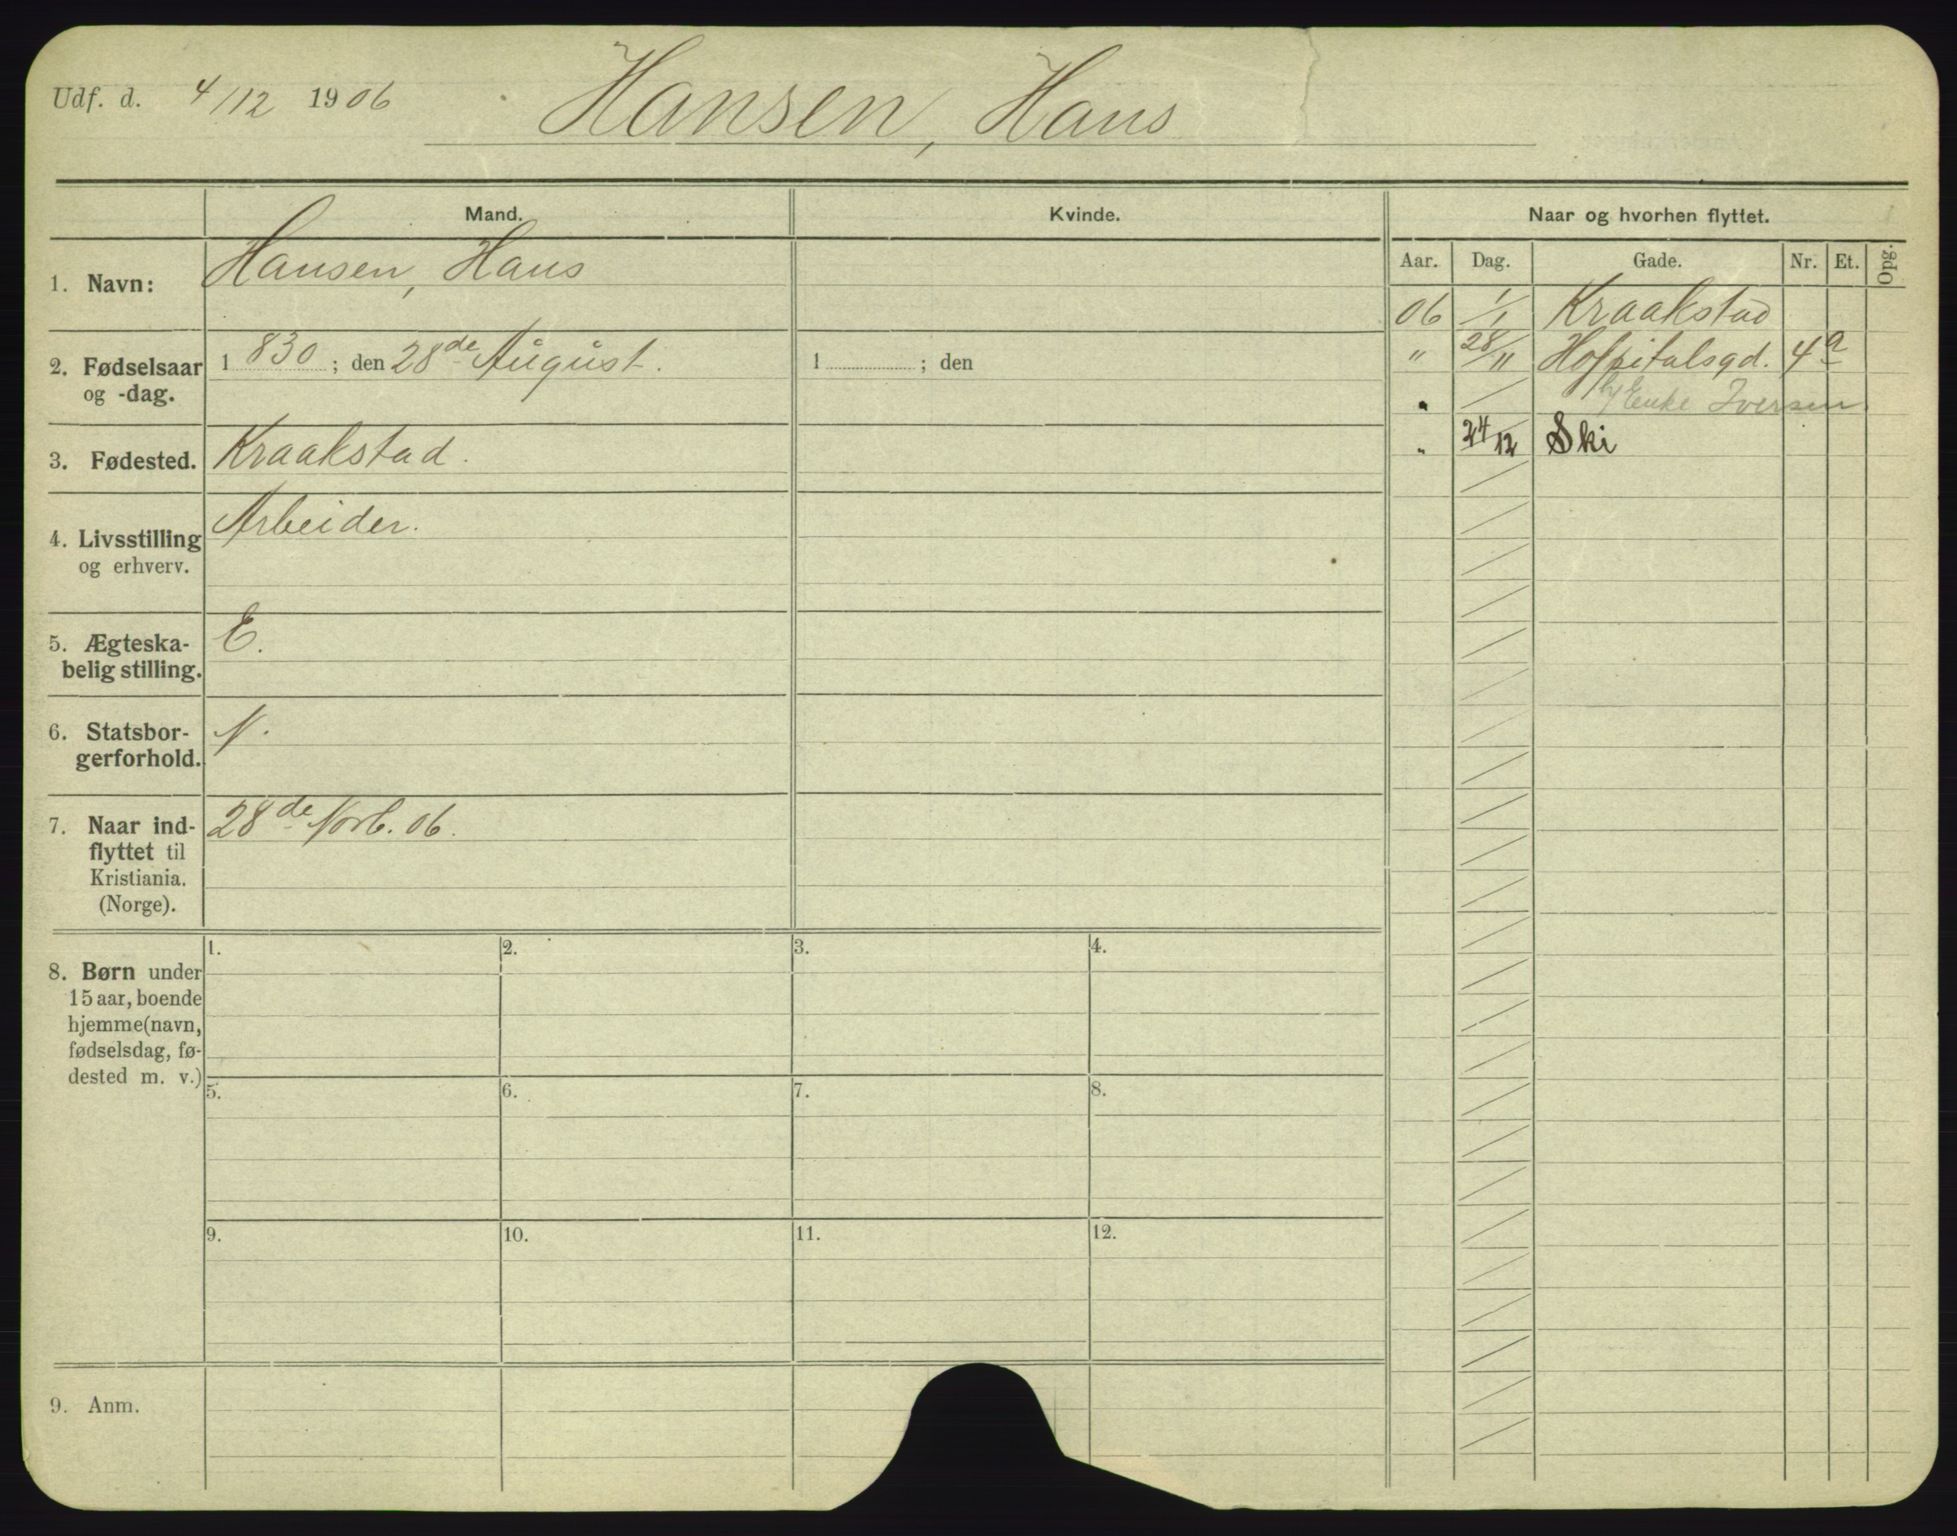 Udf. d. 4/12 1906 Hansen, Hans
Mand. Kvinde. Naar og hvorhen flyttet.
Aar. Dag. Gade. Nr. Et. Opg.
1. Navn: Hansen, Hans
06 1/1 Kraakstad
2. Fødselsaar og -dag. 1830; den 28de August. 1 ; den
" 28/11 Hospitalsgd. 4a
" / Enke Iversen
3. Fødested. Kraakstad.
" 24/12 Ski
4. Livsstilling Arbeider.
og erhverv.
5. Ægteska- E.
belig stilling.
6. Statsbor- N.
gerforhold.
7. Naar ind- 28de Novb. 06.
flyttet til
Kristiania.
(Norge).
1. 2. 3. 4.
8. Børn under
15 aar, boende
hjemme (navn,
fødselsdag, fø-
dested m. v.)
5. 6. 7. 8.
9. 10. 11. 12.
9. Anm.